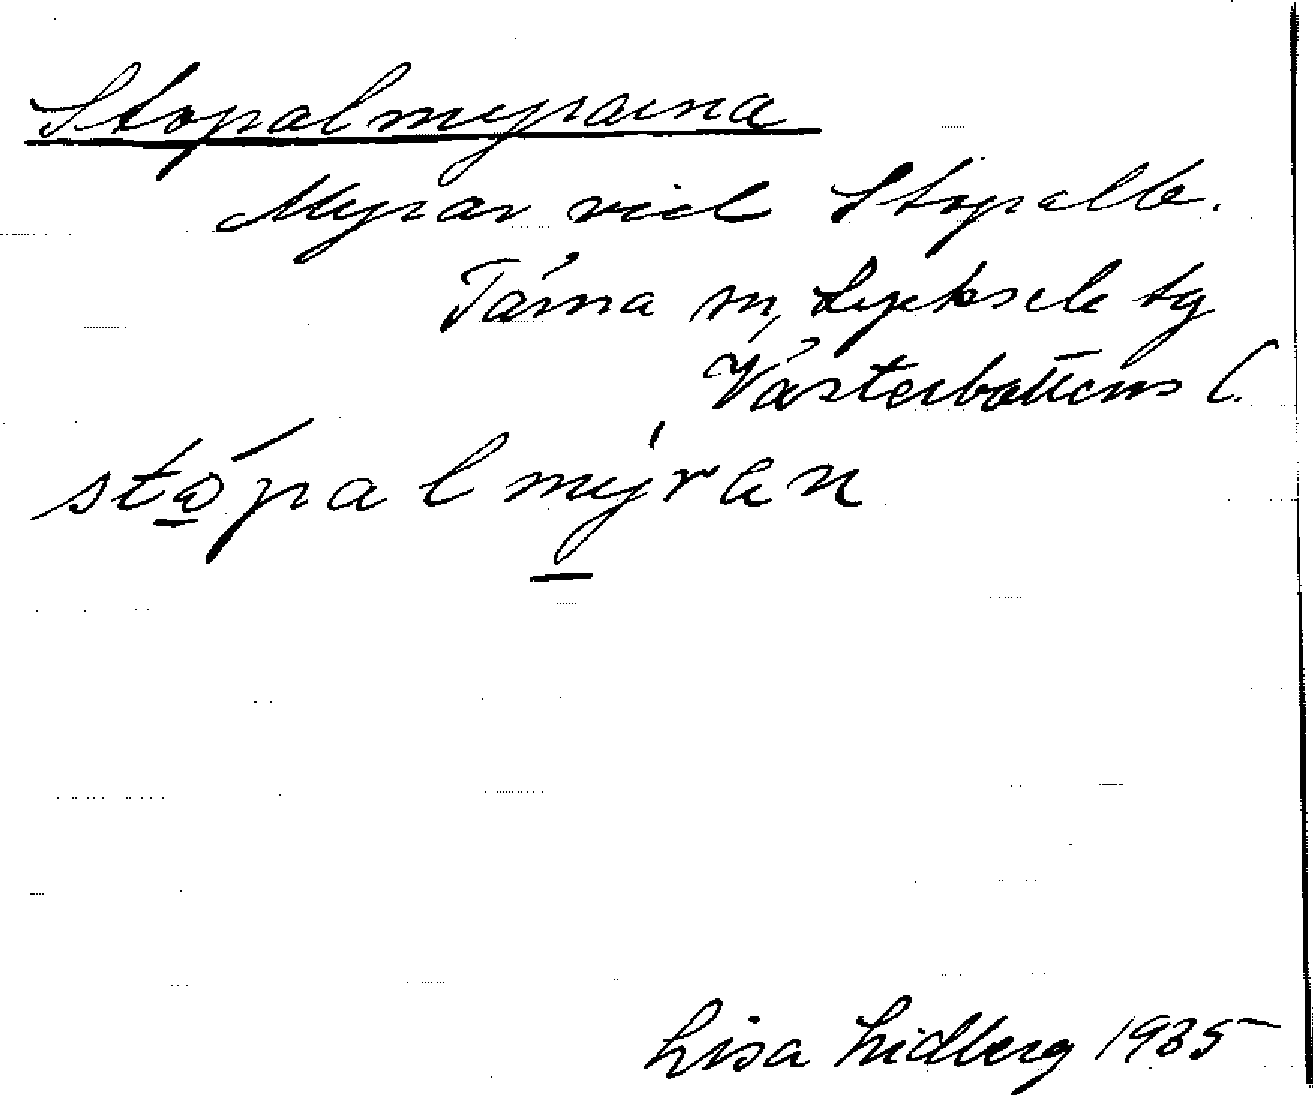 Stopalmyrarna
Myrar vid Stopelle.
Tärna sn, Lycksele tg
Västerbottens l.
stópal mýran
Lisa Lidberg 1935